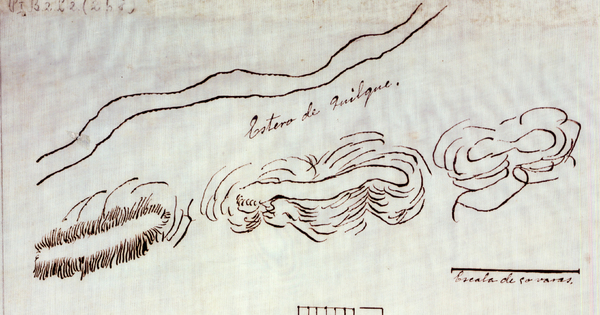 Estero de Quilque.
Escala de 50 varas.